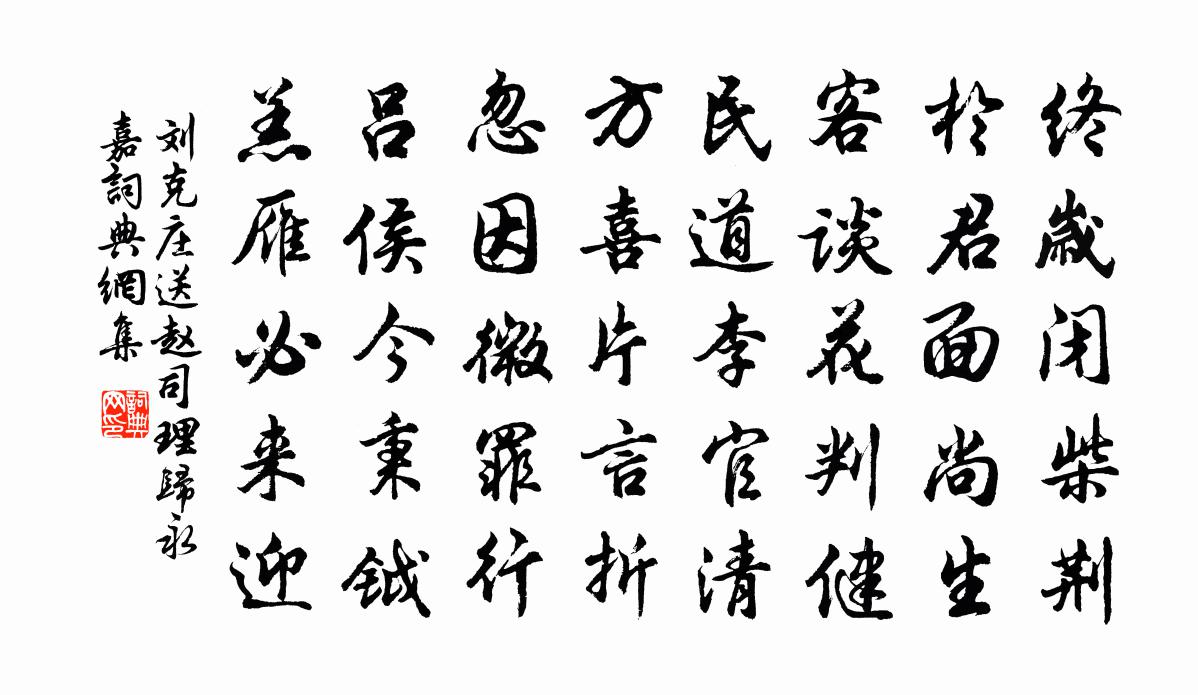 终岁闭柴荆
於君面尚生
客谈花判健
民道李官清
方喜片言折
忽因微罪行
吕侯今秉钺
羔雁必来迎
刘克庄送赵司理歸永
嘉詞典網集
詞典
网印